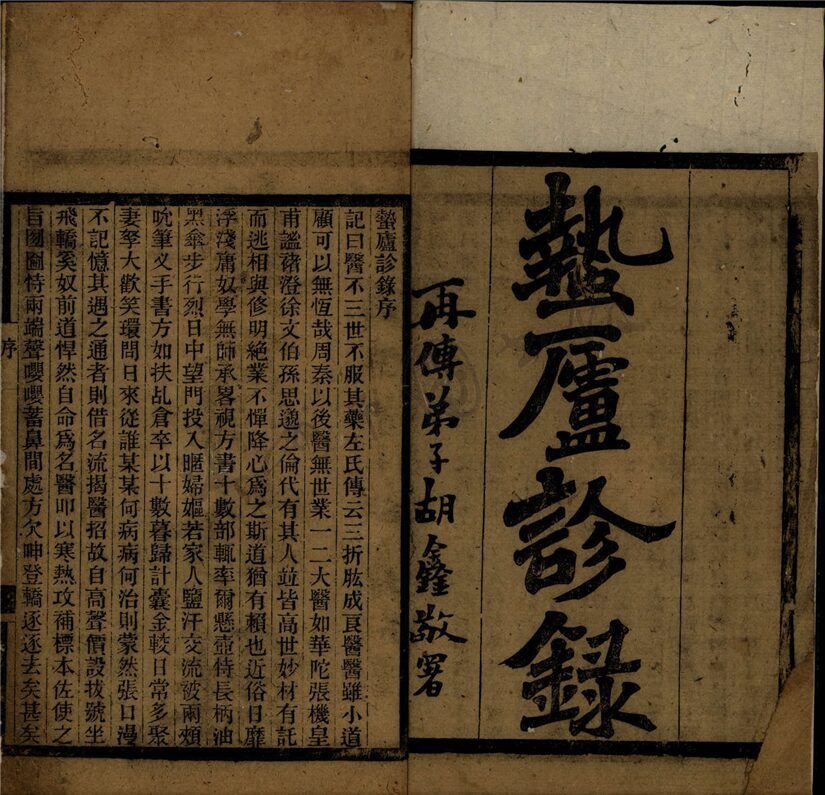 蟄廬診錄
再傳弟子胡鑫敬署
蟄廬診錄序
記曰醫不三世不服其藥左氏傳云三折肱成良醫醫雖小道
顧可以無恆哉周秦以後醫無世業一二大醫如華陀張機皇
甫謐褚澄徐文伯孫思邈之倫代有其人竝皆高世妙材有託
而逃相與修明絕業不憚降心爲之斯道猶有賴也近俗日靡
浮淺庸奴學無師承畧視方書十數部輒率爾懸壺恃長柄油
黑傘步行烈日中望門投入暱婦嫗若家人鹽汗交流被兩頰
吮筆义手書方如扶乩倉卒以十數暮歸計囊金較日常多聚
妻孥大歡笑環問日來從誰某某何病病何治則蒙然張口漫
不記憶其遇之通者則借名流揭醫招故自高聲價設拔號坐
飛轎奚奴前道悍然自命爲名醫叩以寒熱攻補標本佐使之
旨囫圇恃兩端聲嚶嚶蓄鼻間處方欠呻登轎逐逐去矣甚矣
序